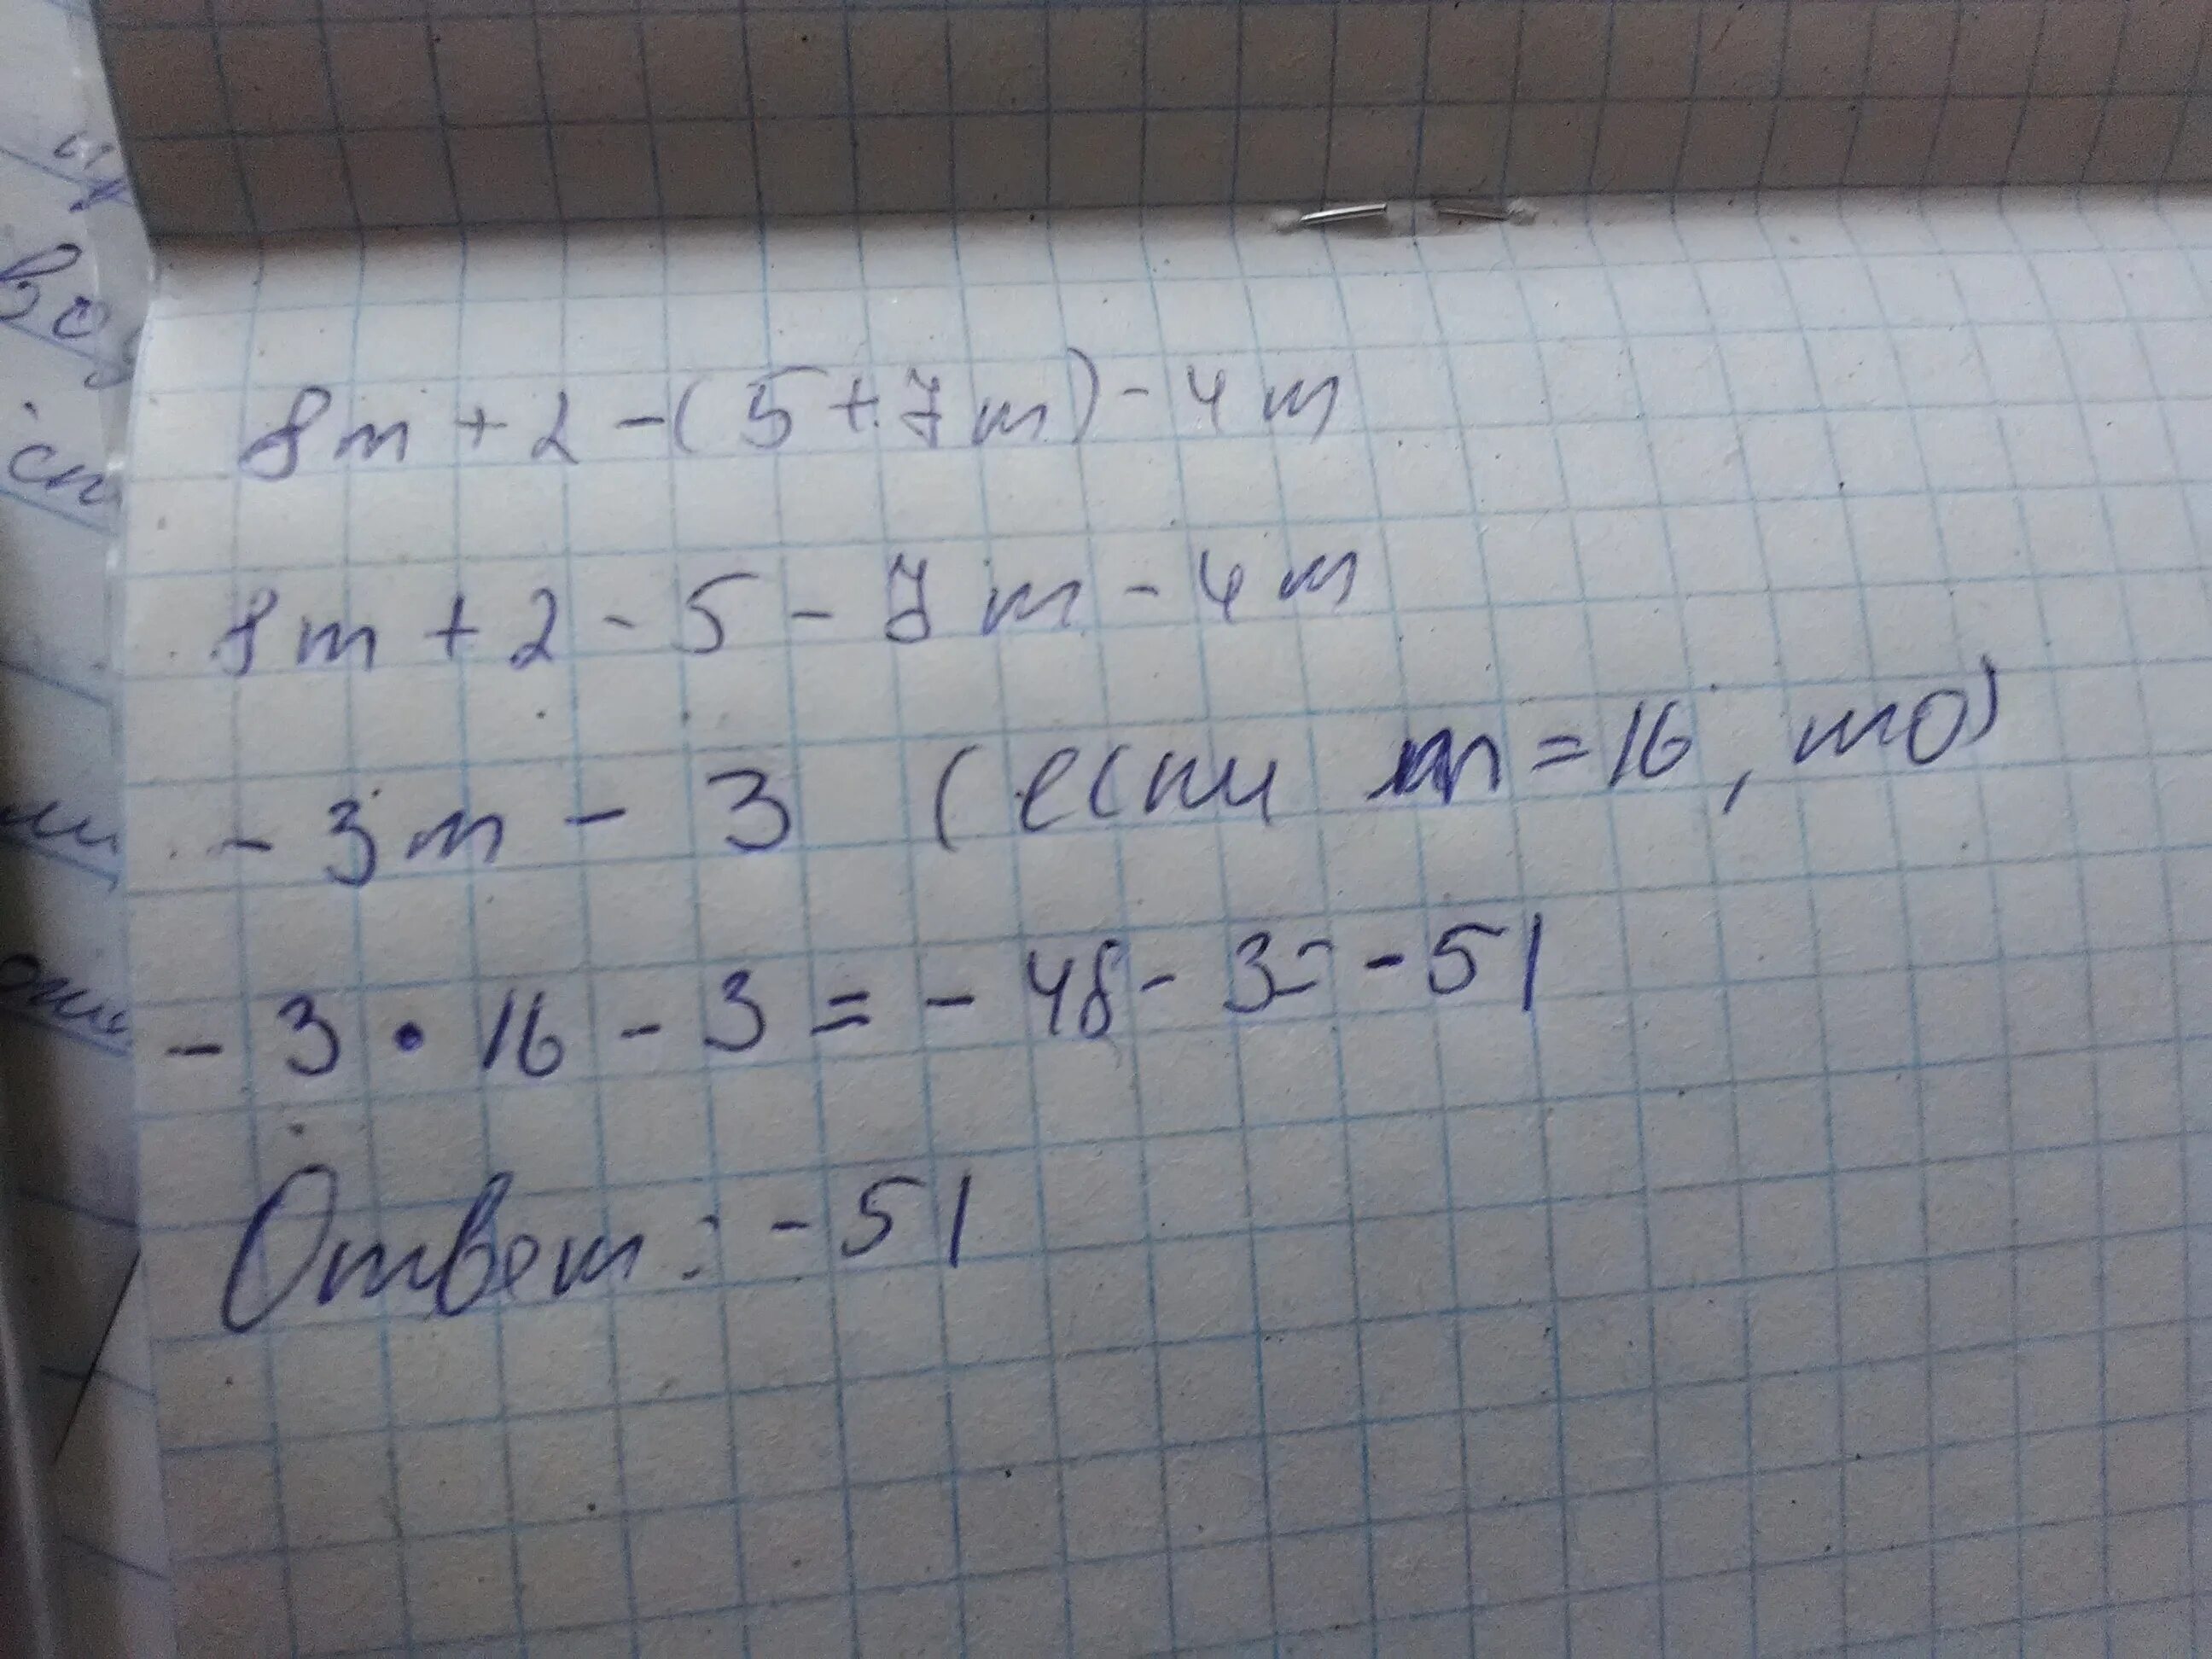 8m + 2 - (5 + 7m) - 4m
8m + 2 - 5 - 7m - 4m
- 3m - 3 (если m = 16, то)
- 3 • 16 - 3 = - 48 - 3 = - 51
Ответ: - 51